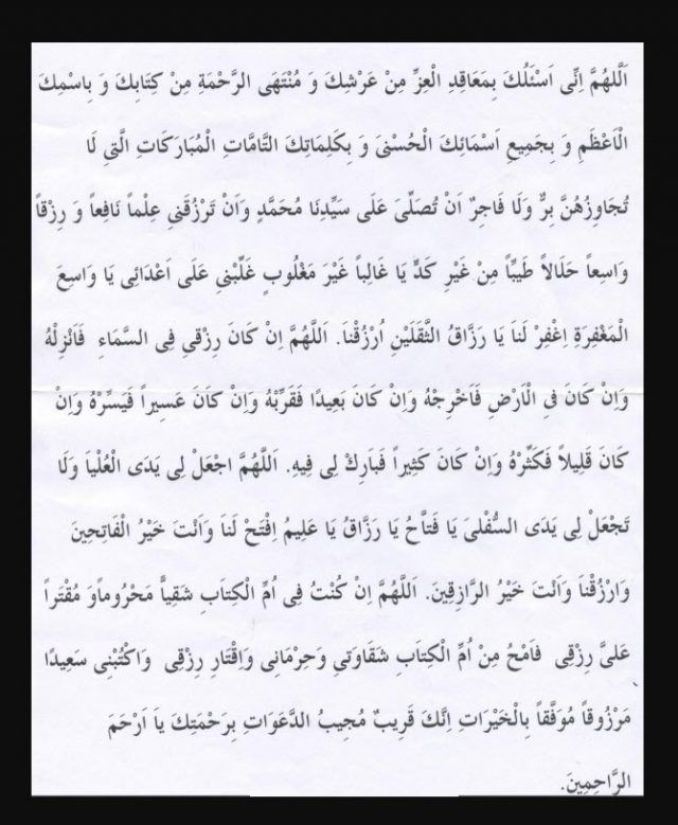 اَللّٰهُمَّ اِنِّى اَسْئَلُكَ بِمَعَاقِدِ الْعِزِّ مِنْ عَرْشِكَ وَ مُنْتَهَى الرَّحْمَةِ مِنْ كِتَابِكَ وَ بِاسْمِكَ
الْاَعْظَمِ وَ بِجَمِيعِ اَسْمَائِكَ الْحُسْنىَ وَ بِكَلِمَاتِكَ التَّامَّاتِ الْمُبَارَكَاتِ الَّتىِ لَا
تُجَاوِزُهُنَّ بِرٌّ وَلَا فَاجِرٌ اَنْ تُصَلِّىَ عَلَى سَيِّدِنَا مُحَمَّدٍ وَاَنْ تَرْزُقَنىِ عِلْماً نَافِعاً وَ رِزْقاً
وَاسِعاً حَلَالاً طَيِّباً مِنْ غَيْرِ كَدٍّ يَا غَالِباً غَيْرَ مَغْلُوبٍ غَلِّبْنىِ عَلَى اَعْدَائِى يَا وَاسِعَ
الْمَغْفِرَةِ اِغْفِرْ لَناَ يَا رَزَّاقُ الثَّقَلَيْنِ اُرْزُقْناَ. اَللّٰهُمَّ اِنْ كَانَ رِزْقىِ فِى السَّمَاءِ فَاَنْزِلْهُ
وَاِنْ كَانَ فىِ الْاَرْضِ فَاَخْرِجْهُ وَاِنْ كَانَ بَعِيدًا فَقَرِّبْهُ وَاِنْ كَانَ عَسِيراً فَيَسِّرْهُ وَاِنْ
كَانَ قَلِيلاً فَكَثِّرْهُ وَاِنْ كَانَ كَثِيراً فَبَارِكْ لِى فِيهِ. اَللّٰهُمَّ اجْعَلْ لِى يَدَى الْعُلْياَ وَلَا
تَجْعَلْ لِى يَدَى السُّفْلىَ يَا فَتاَّحُ يَا رَزَّاقُ يَا عَلِيمُ اِفْتَحْ لَناَ وَاَنْتَ خَيْرُ الْفَاتِحِينَ
وَارْزُقْناَ وَاَنْتَ خَيْرُ الرَّازِقِينَ. اَللّٰهُمَّ اِنْ كُنْتُ فِى اُمِّ الْكِتَابِ شَقِياًّ مَحْرُوماًوَ مُقْتَراً
عَلىَّ رِزْقىِ فَامْحُ مِنْ اُمِّ الْكِتَابِ شَقَاوَتىِ وَحِرْمَانِى وَاِقْتَارِ رِزْقىِ وَاكْتُبْنىِ سَعِيدًا
مَرْزُوقاً مُوَفَّقاً بِالْخَيْرَاتِ اِنَّكَ قَرِيبٌ مُجِيبُ الدَّعَوَاتِ بِرَحْمَتِكَ ياَ اَرْحَمَ
الرَّاحِمِينَ.